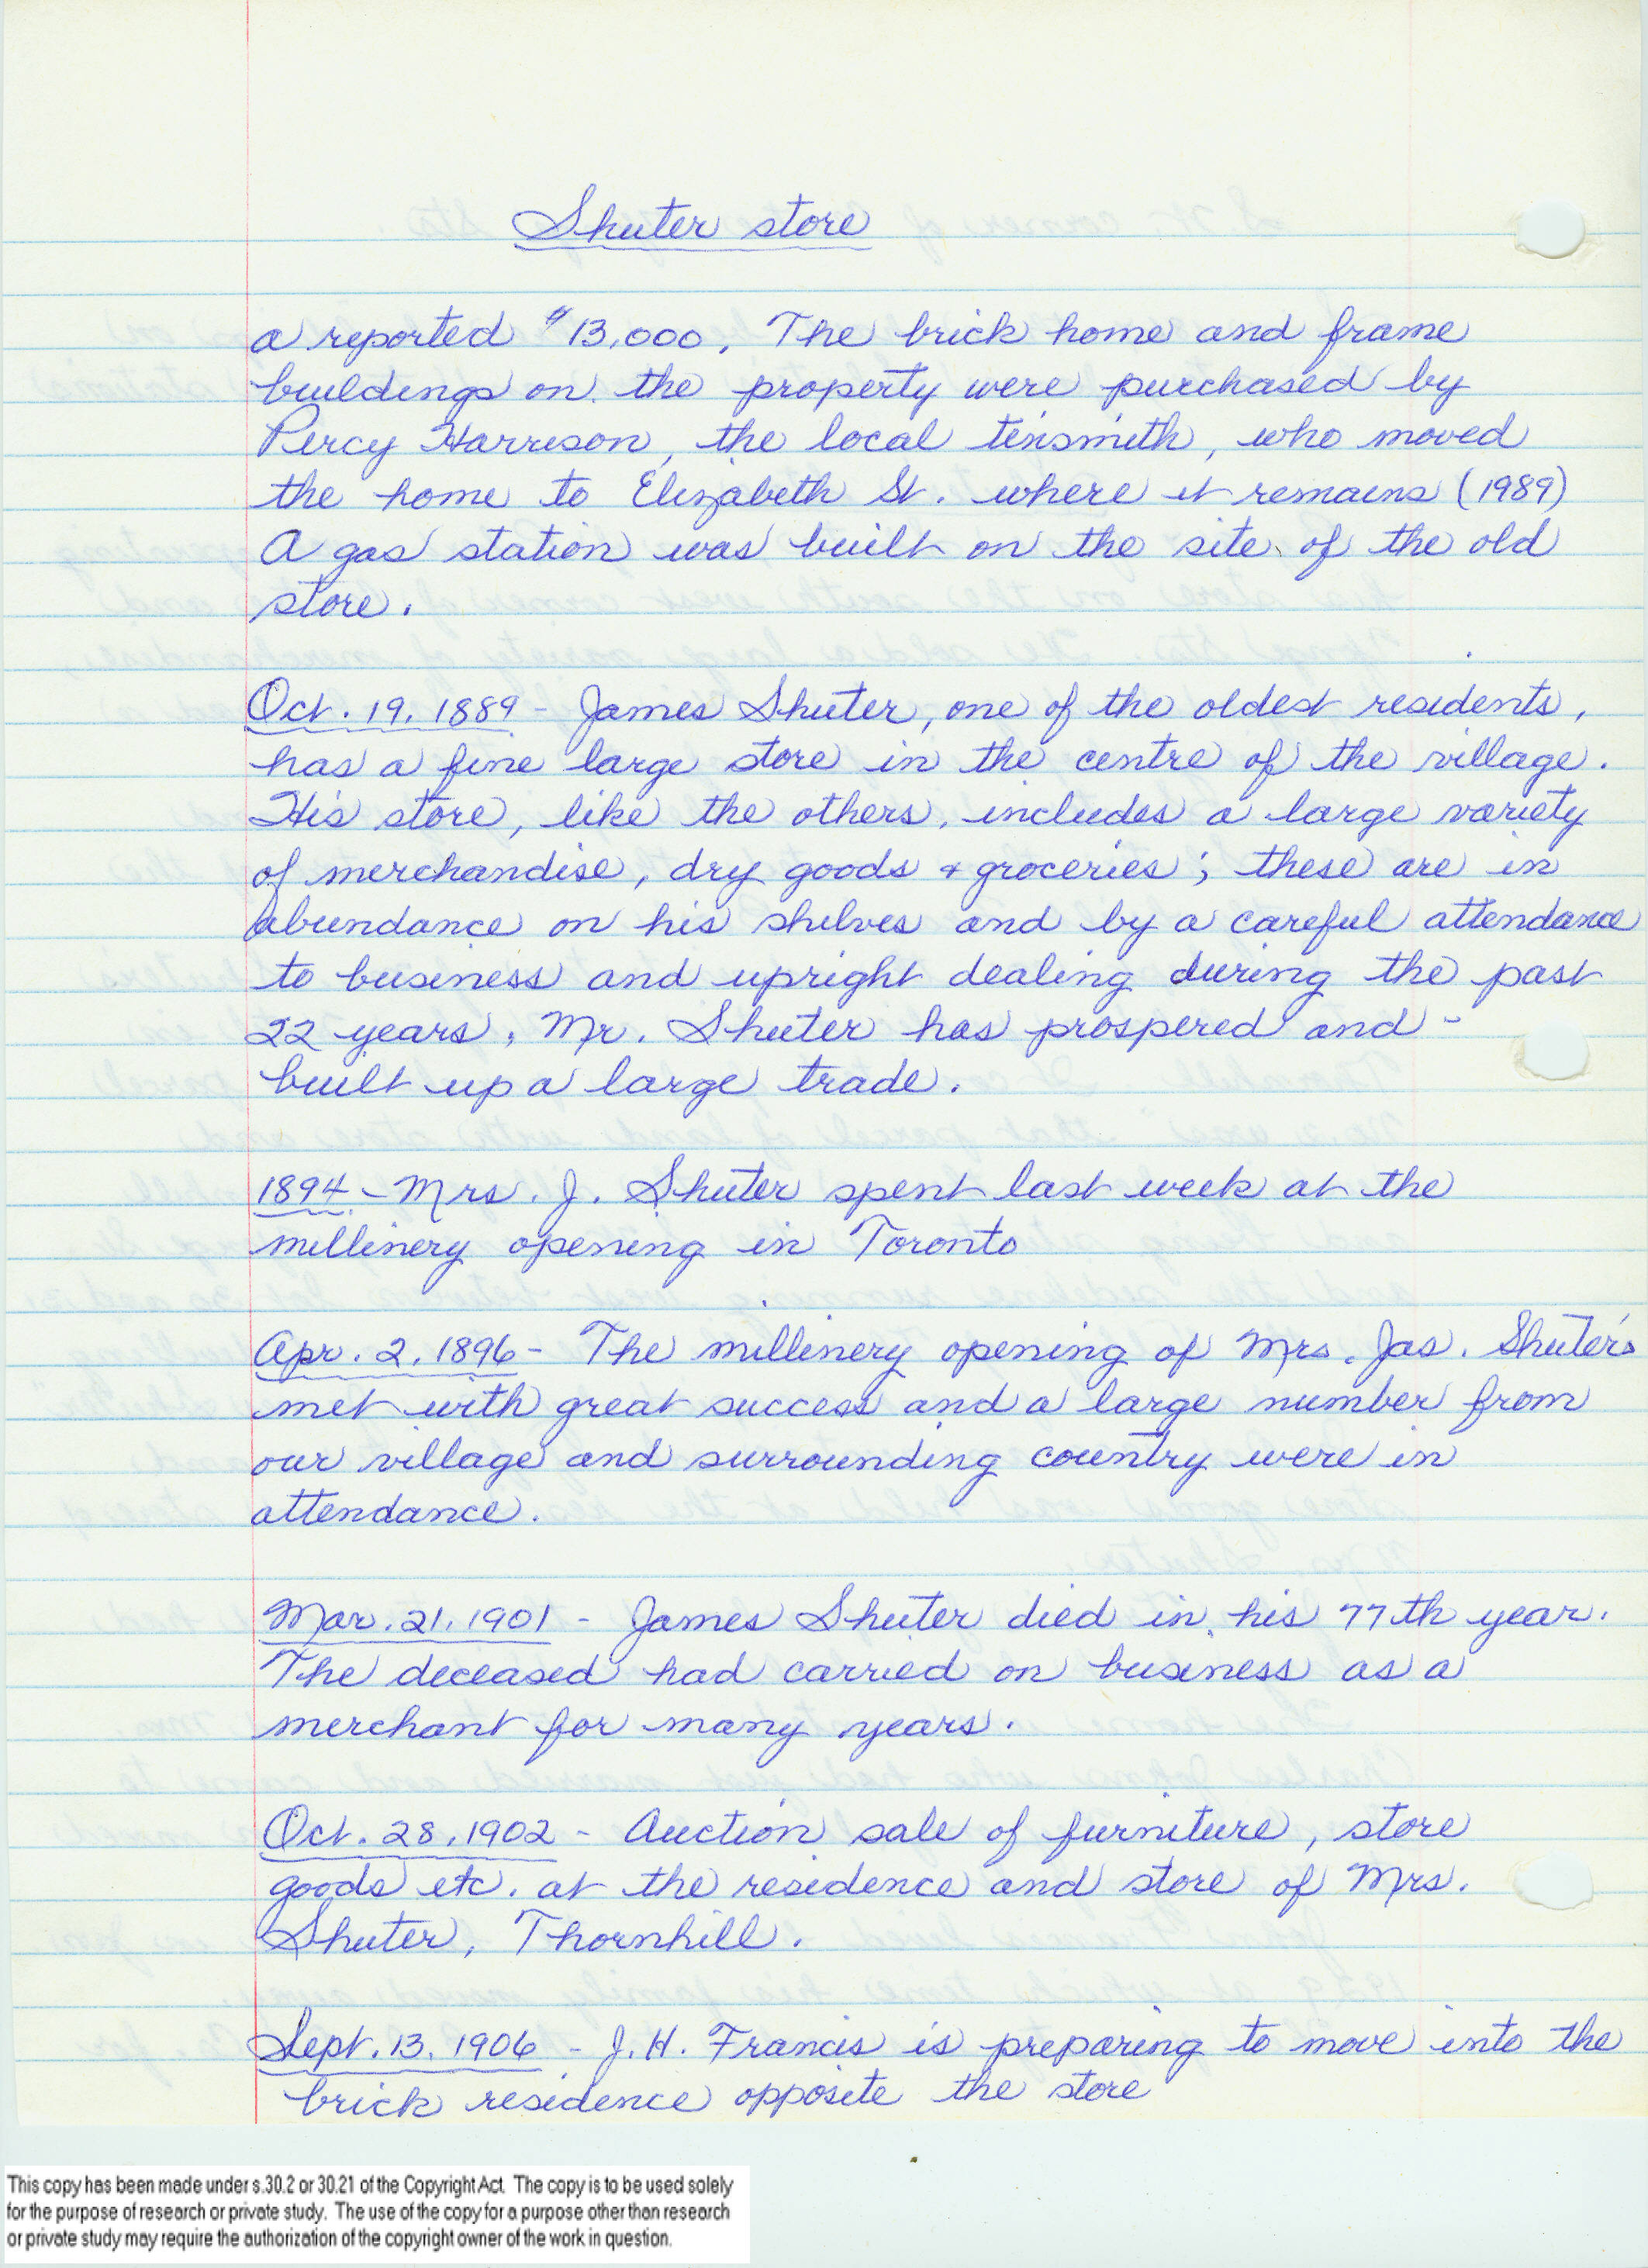 Shuter store
a reported $13,000. The brick home and frame
buildings on the property were purchased by
Percy Harrison, the local tinsmith, who moved
the home to Elizabeth St. where it remains (1989)
A gas station was built on the site of the old
store.
Oct. 19, 1889 - James Shuter, one of the oldest residents,
has a fine large store in the centre of the village.
His store, like the others, includes a large variety
of merchandise, dry goods + groceries; these are in
abundance on his shelves and by a careful attendance
to business and upright dealing during the past
22 years, Mr. Shuter has prospered and -
built up a large trade.
1894 - Mrs. J. Shuter spent last week at the
millinery opening in Toronto
Apr. 2, 1896 - The millinery opening of Mrs. Jas. Shuter's
met with great success and a large number from
our village and surrounding country were in
attendance.
Mar. 21, 1901 - James Shuter died in his 77th year.
The deceased had carried on business as a
merchant for many years.
Oct. 28, 1902 - Auction sale of furniture, store
goods etc. at the residence and store of Mrs.
Shuter, Thornhill.
Sept. 13, 1906 - J. H. Francis is preparing to move into the
brick residence opposite the store
This copy has been made under s.30.2 or 30.21 of the Copyright Act. The copy is to be used solely
for the purpose of research or private study. The use of the copy for a purpose other than research
or private study may require the authorization of the copyright owner of the work in question.